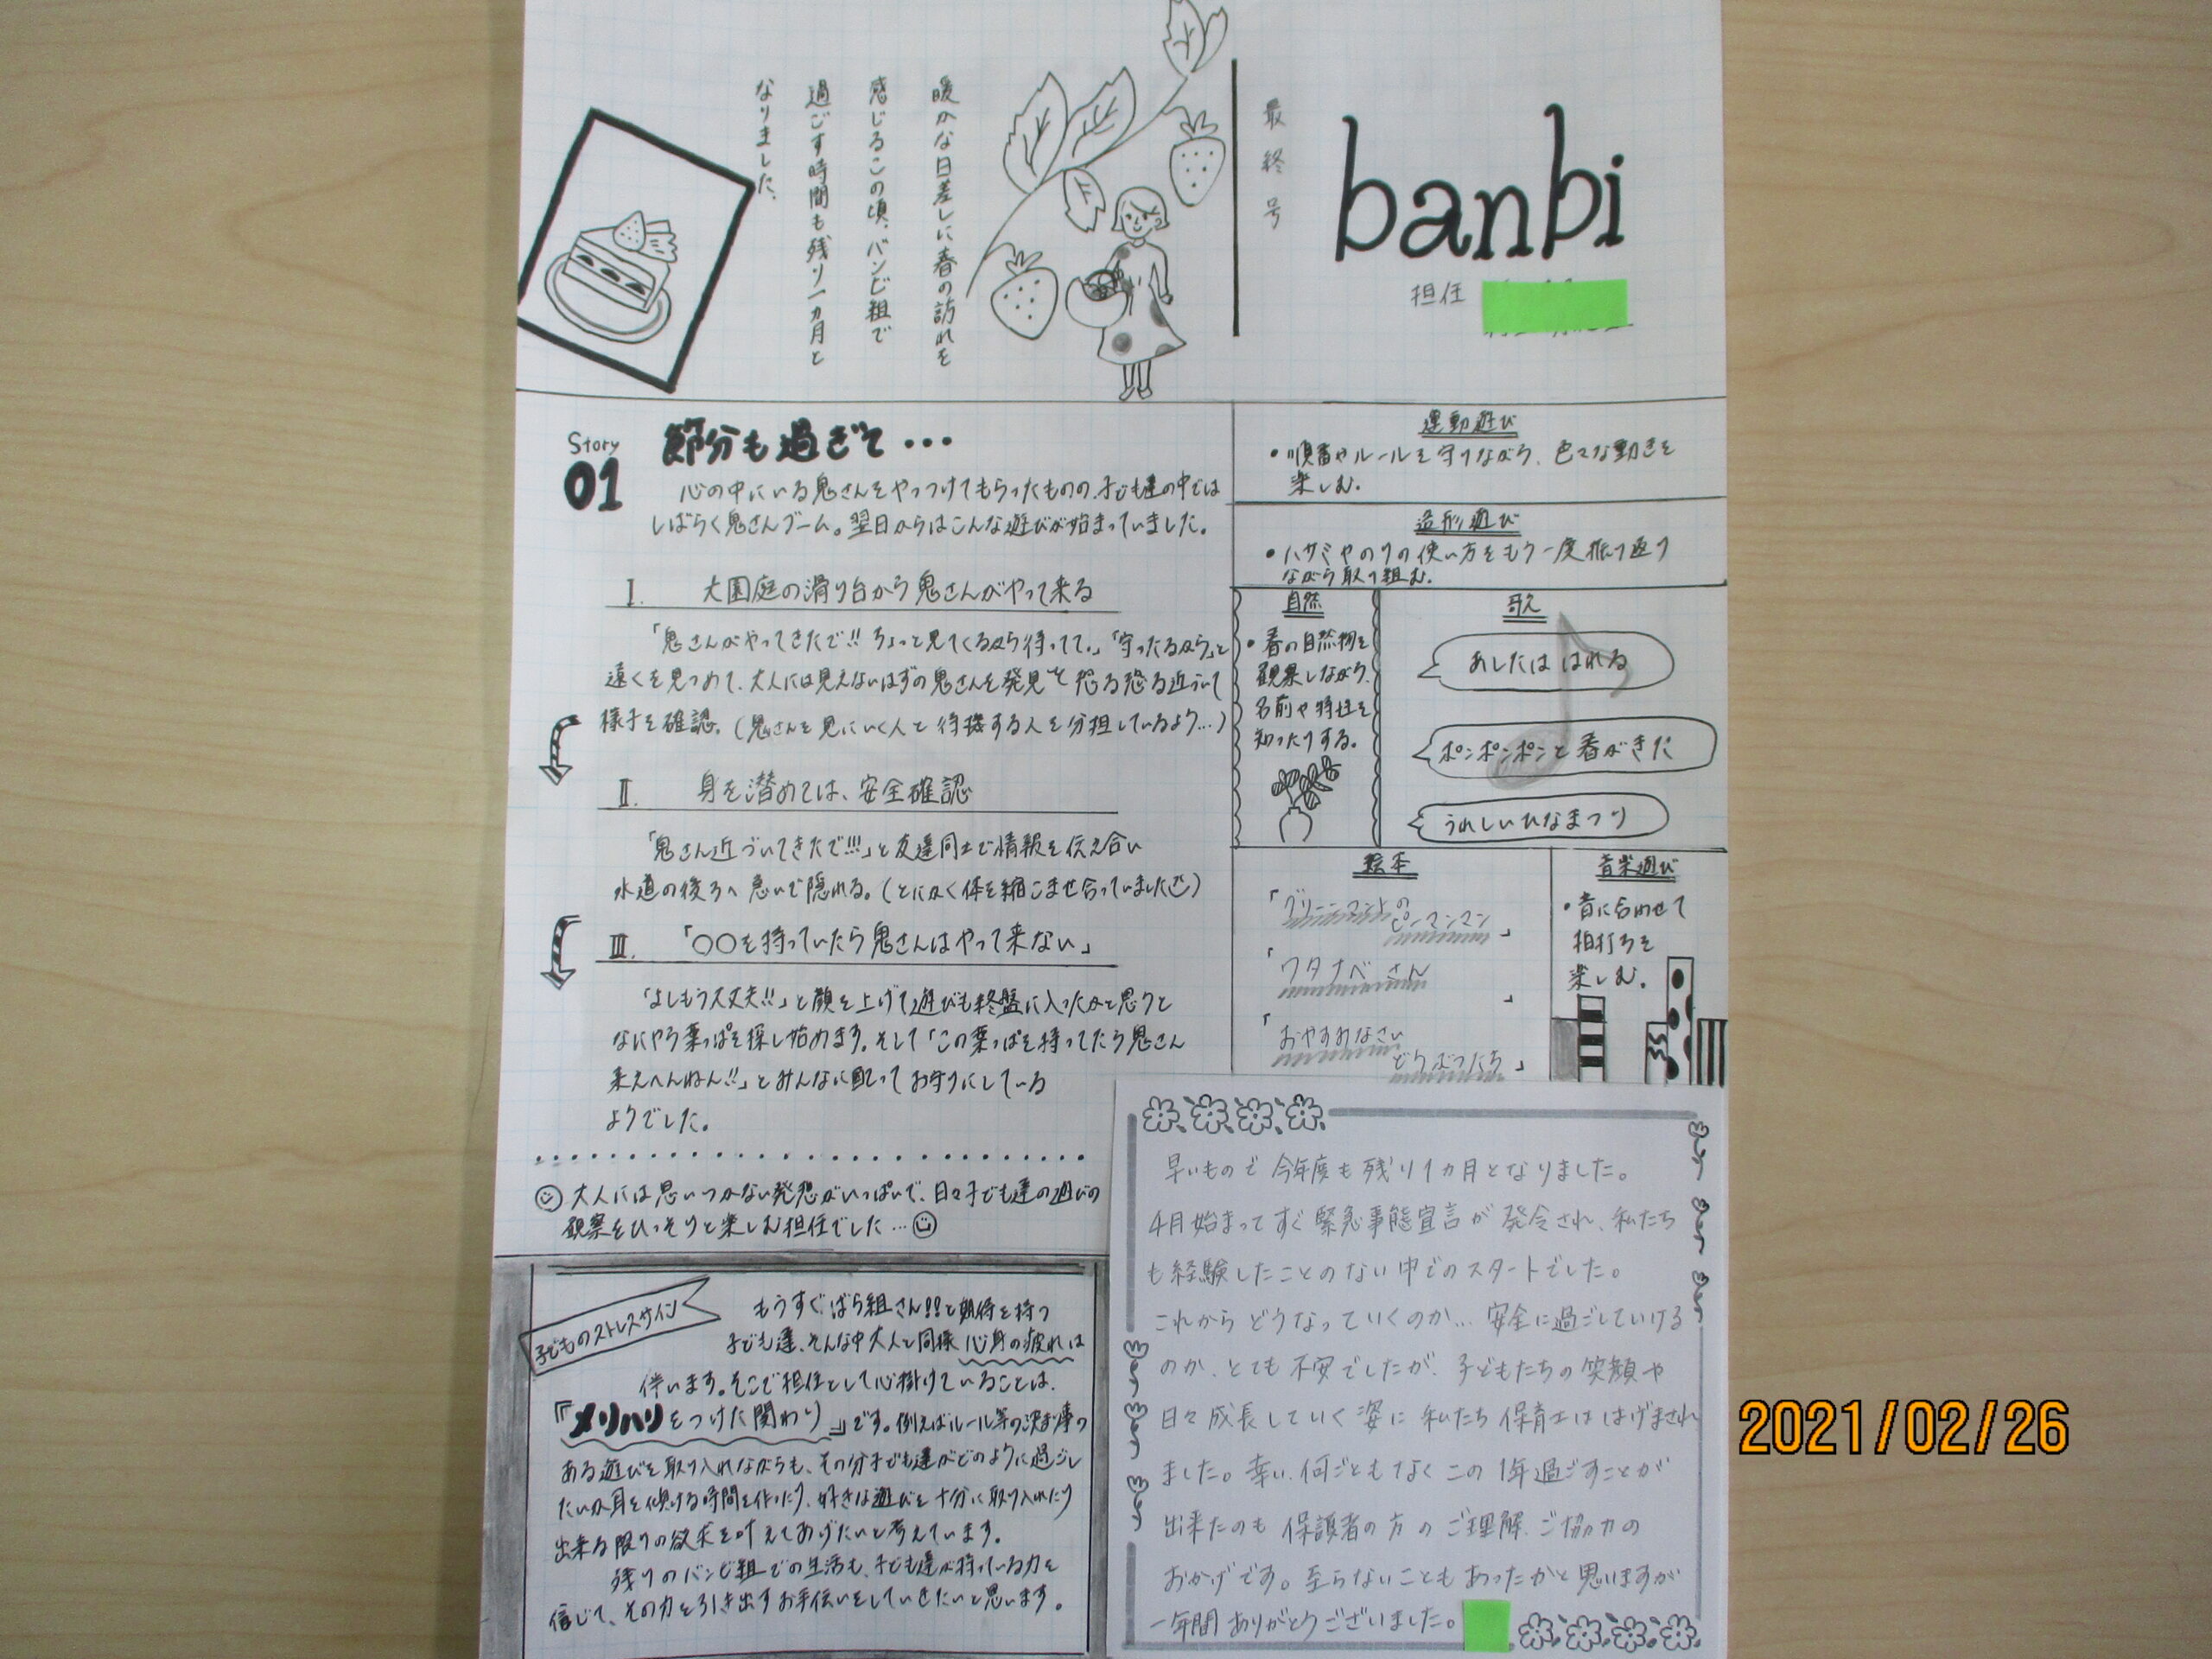 banbi
最終号
担任
暖かな日差しに春の訪れを
感じるこの頃、バンビ組で
過ごす時間も残り一ヵ月と
なりました。
Story
01
節分も過ぎて・・・
心の中にいる鬼さんをやっつけてもらったものの、子ども達の中では
しばらく鬼さんブーム。翌日からはこんな遊びが始まっていました。
Ⅰ. 大園庭の滑り台から鬼さんがやって来る
「鬼さんがやってきたで!! ちょっと見てくるから待ってて。」「守ったるから」と
遠くを見つめて、大人には見えないはずの鬼さんを発見し恐る恐る近づいて
様子を確認。(鬼さんを見にいく人と待機する人を分担しているよう…)
Ⅱ. 身を潜めては、安全確認
「鬼さん近づいてきたで!!!」と友達同士で情報を伝え合い
水道の後ろへ急いで隠れる。(とにかく体を縮こませ合っていました)
Ⅲ. 「○○を持っていたら鬼さんはやって来ない」
「よしもう大丈夫!!」と顔を上げて遊びも終盤に入ったかと思うと
なにやら葉っぱを探し始めます。そして「この葉っぱを持ってたら鬼さん
来えへんねん!!」とみんなに配ってお守りにしている
ようでした。
大人には思いつかない発想がいっぱいで、日々子ども達の遊びの
観察をひっそりと楽しむ担任でした…
子どものストレスサイン
もうすぐばら組さん!!と期待を持つ
子ども達、そんな中大人と同様心身の疲れは
伴います。そこで担任として心掛けていることは、
『メリハリをつけた関わり』です。例えばルール等の決まり事の
ある遊びを取り入れながらも、その分子ども達がどのように過ごし
たいか耳を傾ける時間を作ったり、好きな遊びを十分に取り入れたり
出来る限りの欲求を叶えてあげたいと考えています。
残りのバンビ組での生活も、子ども達が持っている力を
信じて、その力を引き出すお手伝いをしていきたいと思います。
運動遊び
・順番やルールを守りながら、色々な動きを
楽しむ。
造形遊び
・ハサミやのりの使い方をもう一度振り返り
ながら取り組む。
自然
・春の自然物を
観察しながら、
名前や特性を
知ったりする。
歌
あしたははれる
ポンポンポンと春がきた
うれしいひなまつり
絵本
「グリーンマントの
ピーマンマン」
「ワタナベさん」
「おやすみなさい
どうぶつたち」
音楽遊び
・音に合わせて
拍打ちを
楽しむ。
早いもので今年度も残り1ヵ月となりました。
4月始まってすぐ緊急事態宣言が発令され、私たち
も経験したことのない中でのスタートでした。
これからどうなっていくのか…安全に過ごしていける
のか、とても不安でしたが、子どもたちの笑顔や
日々成長していく姿に私たち保育士ははげまされ
ました。幸い、何ごともなくこの1年過ごすことが
出来たのも保護者の方のご理解、ご協力の
おかげです。至らないこともあったかと思いますが
一年間ありがとうございました。
2021/02/26